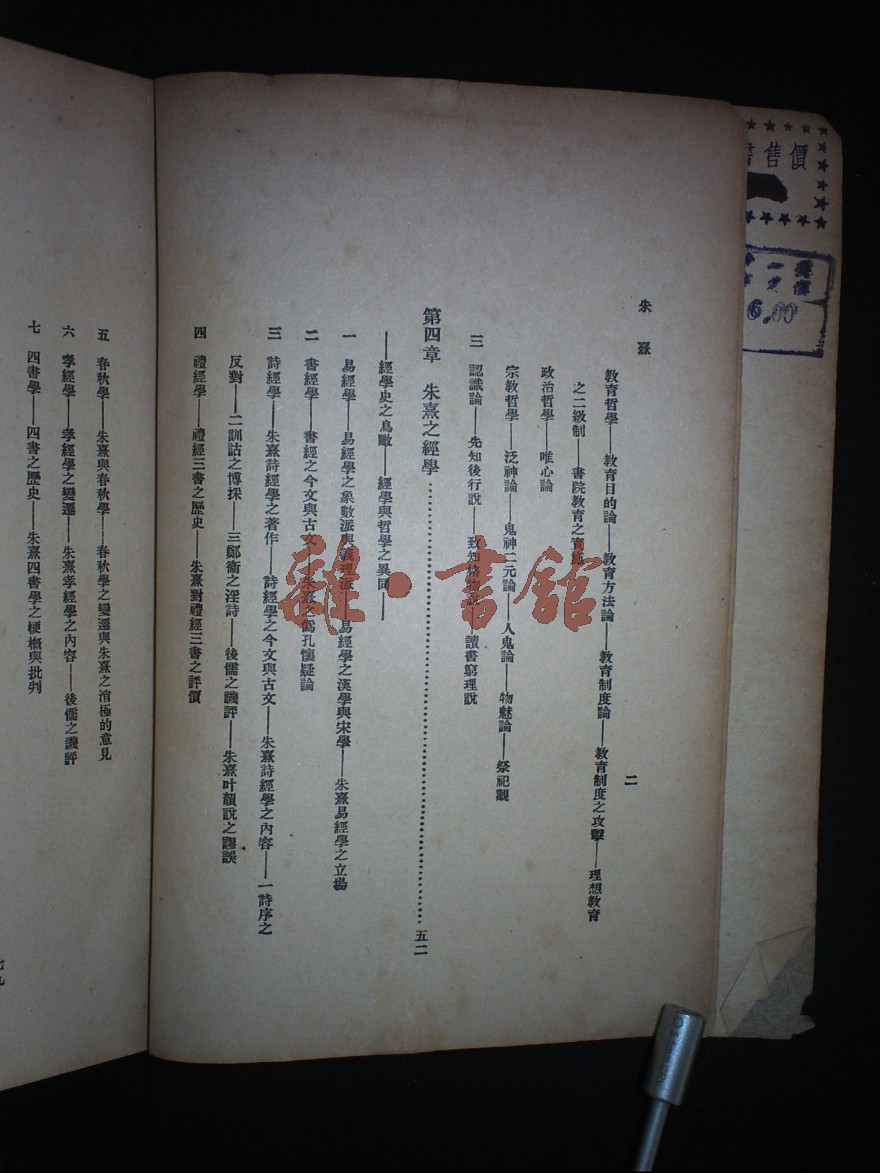 朱熹
二
教育哲學——教育目的論——教育方法論——教育制度論——教育制度之攻擊——理想教育
之二級制——書院教育之實施
政治哲學——唯心論
宗教哲學——泛神論——鬼神二元論——人鬼論——物魅論——祭祀觀
三 認識論——先知後行說——致知格物說——讀書窮理說
第四章 朱熹之經學……五二
——經學史之鳥瞰——經學與哲學之異同——
一 易經學——易經學之象數派與義理派——易經學之漢學與宋學——朱熹易經學之立場
二 書經學——書經之今文與古文——朱熹之僞孔懷疑論
三 詩經學——朱熹詩經學之著作——詩經學之今文與古文——朱熹詩經學之內容——一詩序之
反對——二訓詁之博採——三鄭衞之淫詩——後儒之譏評——朱熹叶韻說之謬誤
四 禮經學——禮經三書之歷史——朱熹對禮經三書之評價
五 春秋學——朱熹與春秋學——春秋學之變遷與朱熹之消極的意見
六 孝經學——孝經學之變遷——朱熹孝經學之內容——後儒之譏評
七 四書學——四書之歷史——朱熹四書學之梗槪與批判
售價
6.00
書舘